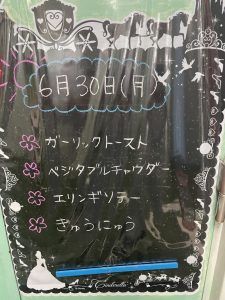 6月30日(月)
ガーリックトースト
ベジタブルチャウダー
エリンギソテー
ぎゅうにゅう
Cinderella